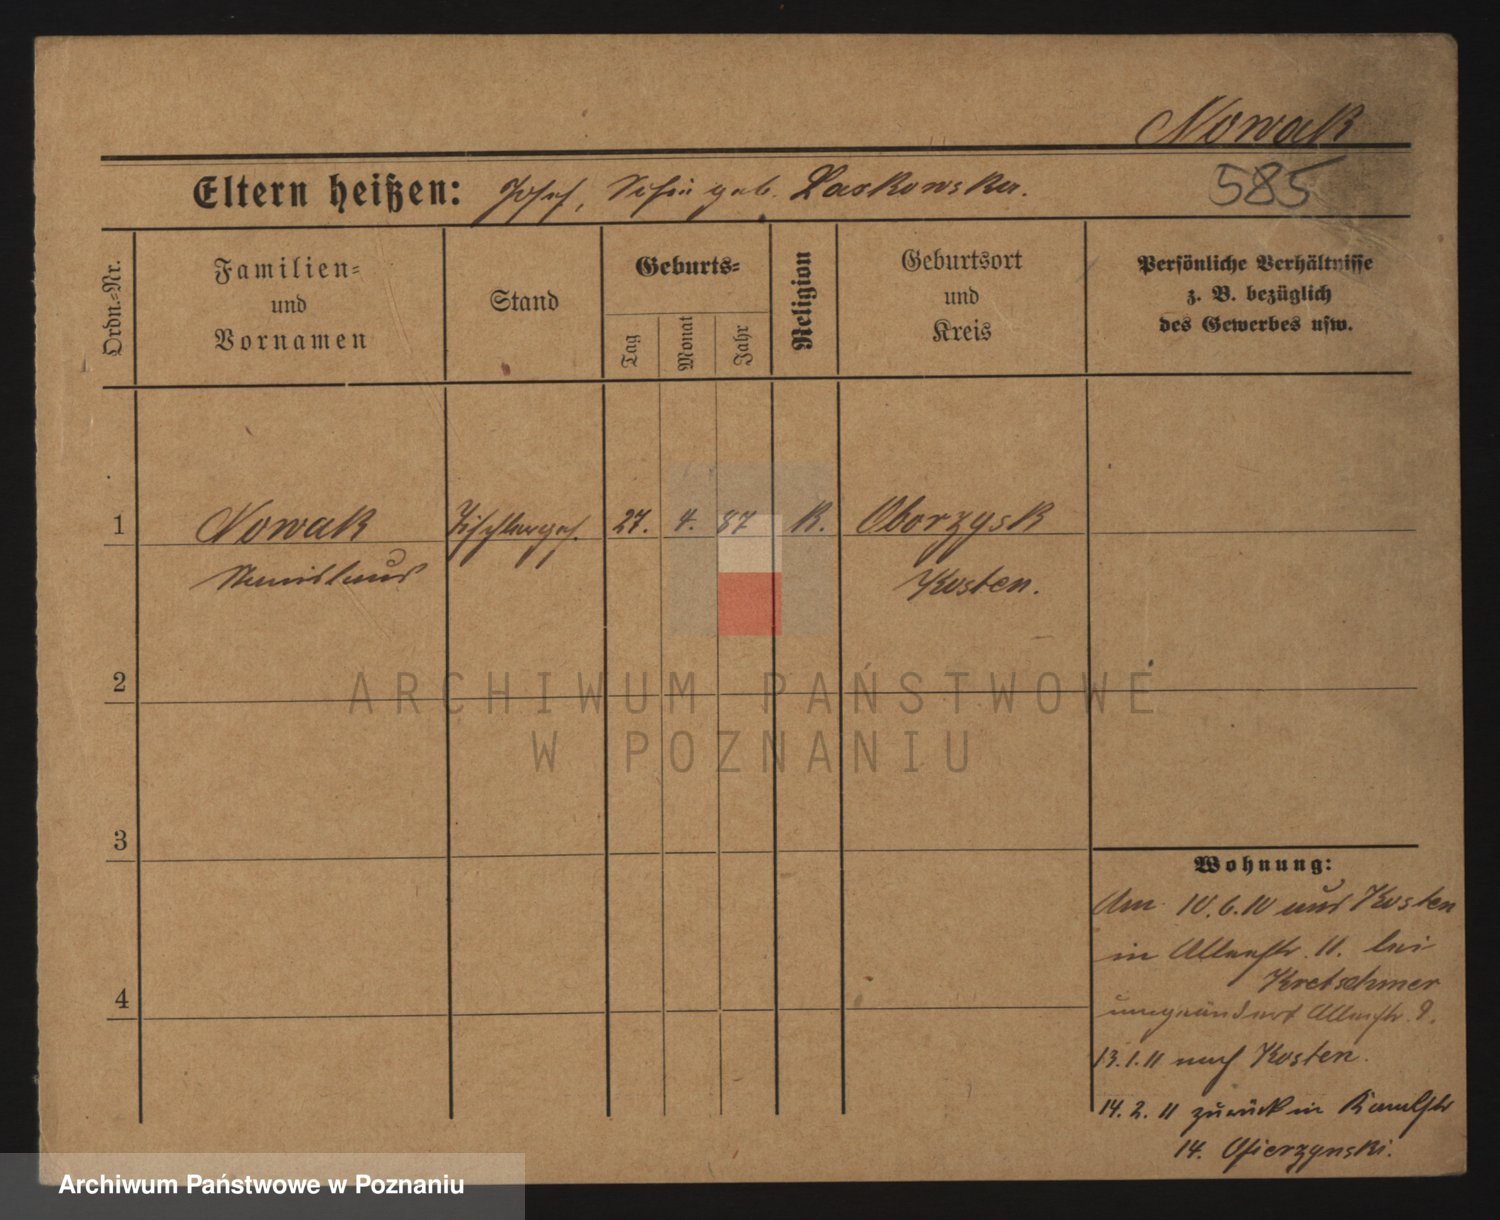 Nowak
585
Eltern heißen: Josef, Sofia geb. Laskowska.
Ordn.-Nr.
Familien-
und
Vornamen
Stand
Geburts-
Tag
Monat
Jahr
Religion
Geburtsort
und
Kreis
Persönliche Verhältnisse
z. B. bezüglich
des Gewerbes usw.
1
Nowak
Tischlerges.
27.
4.
87
K.
Oborzysk
Stanislaus
Kosten.
2
ARCHIWUM PAŃSTWOWE
W POZNANIU
3
Wohnung:
Am 10.6.10 aus Kosten
in 11. bei
Kretschmer
umgeändert 9.
13.1.11 nach Kosten.
14.2.11 zurück in
14. Ofierzynski.
4
Archiwum Państwowe w Poznaniu